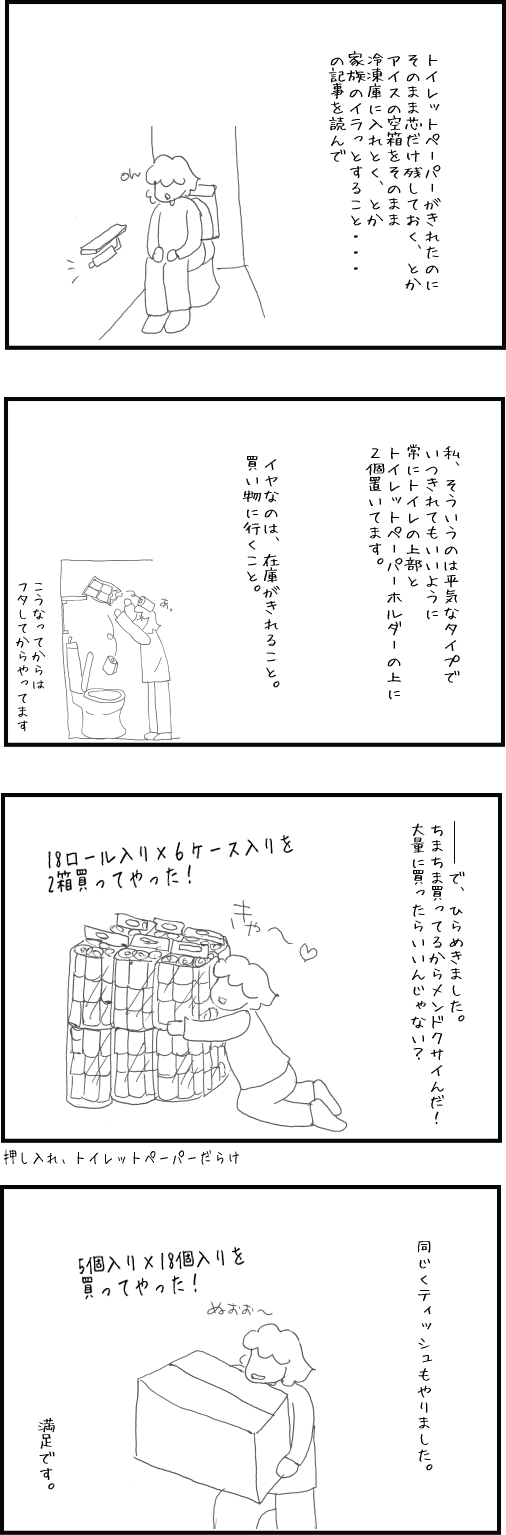 トイレットペーパーがきれたのに
そのまま芯だけ残しておく、とか
アイスの空箱をそのまま
冷凍庫に入れとく、とか
家族のイラっとすること・・・
の記事を読んで
oh
私、そういうのは平気なタイプで
いつきれてもいいように
常にトイレの上部と
トイレットペーパーホルダーの上に
2個置いてます。
イヤなのは、在庫がきれること。
買い物に行くこと。
あっ
こうなってからは
フタしてからやってます
――で、ひらめきました。
ちまちま買ってるからメンドクサイんだ!
大量に買ったらいいんじゃない?
18ロール入り×6ケース入りを
2箱買ってやった!
きゃ~♡
押し入れ、トイレットペーパーだらけ
同じくティッシュもやりました。
5個入り×18個入りを
買ってやった!
ぬおお~
満足です。